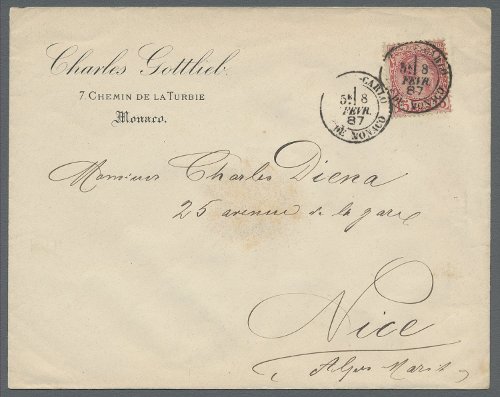 Charles Gottlieb.
7. CHEMIN DE LA TURBIE
Monaco.
CARLO
1
5E 8
FEVR.
87
DE MONACO
CARLO
1
5E 8
FEVR.
87
DE MONACO
Monsieur Charles Diena
25 avenue de la gare
Nice
Alpes Marit